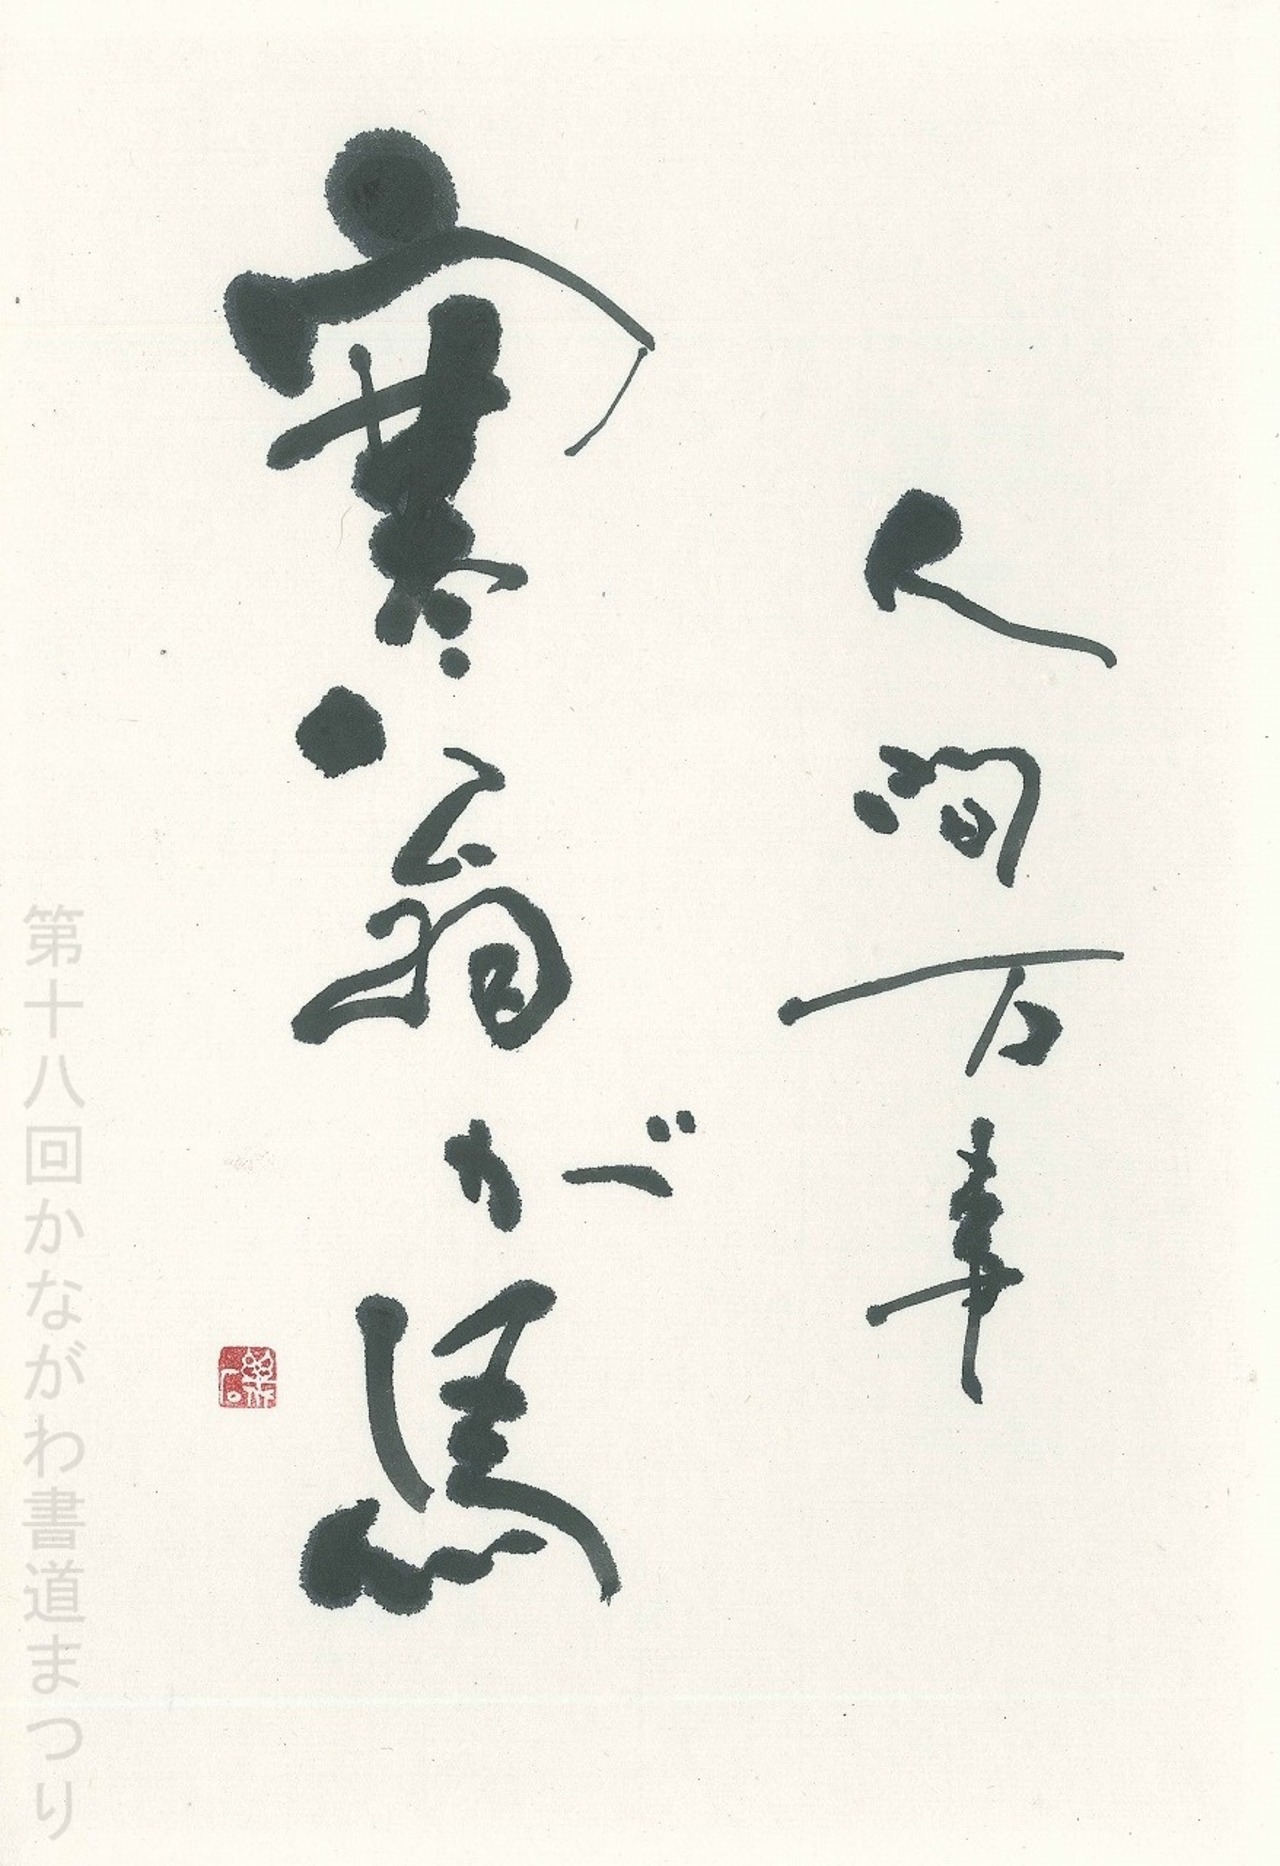 人間万事
塞翁が馬
第十八回かながわ書道まつり